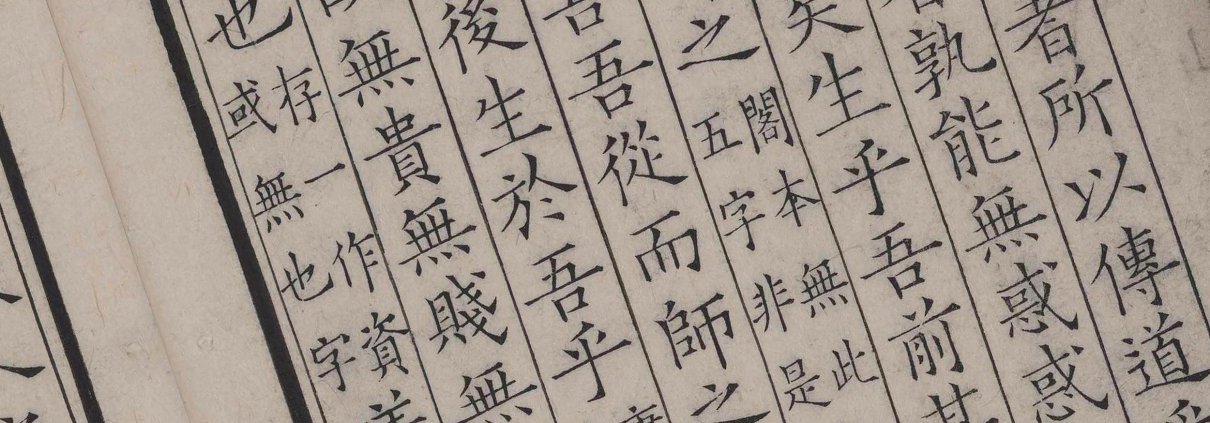 者所以傳道
孰能無惑惑
矣生乎吾前其
之
閣本無此
五字非是
吾吾從而師之
後生於吾乎
無貴無賤無
也
存一作資
或無也字